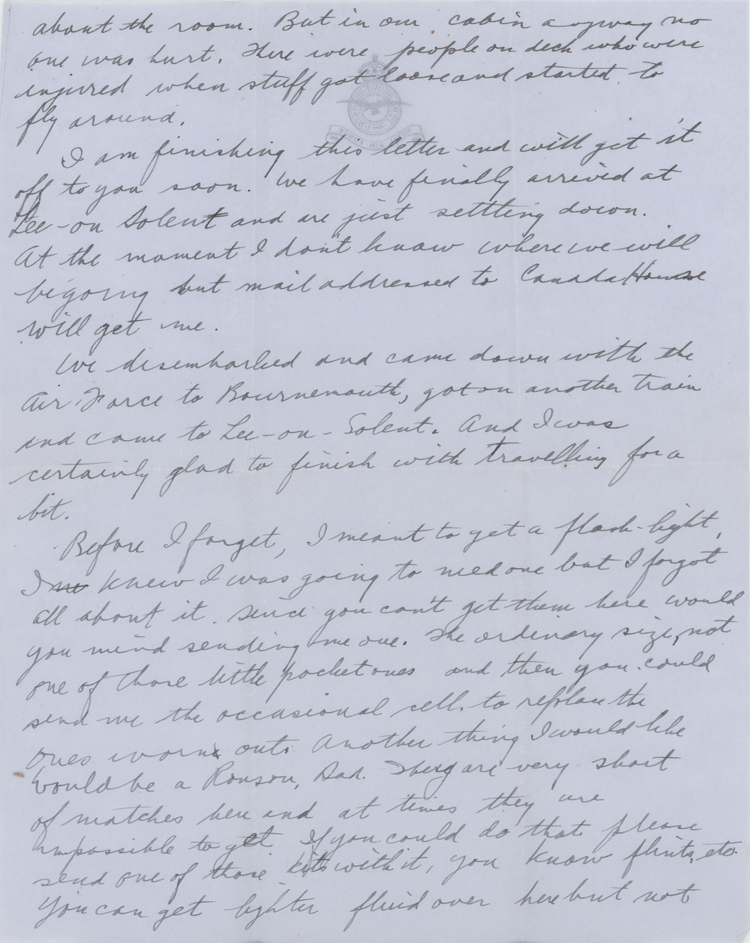 about the room. But in our cabin anyway no
one was hurt. There were people on deck who were
injured when stuff got loose and started to
fly around.
I am finishing this letter and will get it
off to you soon. We have finally arrived at
Lee-on Solent and are just settling down.
At the moment I don't know where we will
be going but mail addressed to Canada House
will get me.
We disembarked and came down with the
Air Force to Bournemouth, got on another train
and came to Lee-on-Solent. And I was
certainly glad to finish with travelling for a
bit.
Before I forget, I meant to get a flash-light,
I knew I was going to need one but I forgot
all about it. Since you can't get them here would
you mind sending me one. The ordinary size, not
one of those little pocket ones and then you could
send me the occasional cell. to replace the
ones worn out. Another thing I would like
would be a Ronson, Dad. They are very short
of matches here and at times they are
impossible to get. If you could do that please
send one of those kits with it, you know flints, etc
You can get lighter fluid over here but not